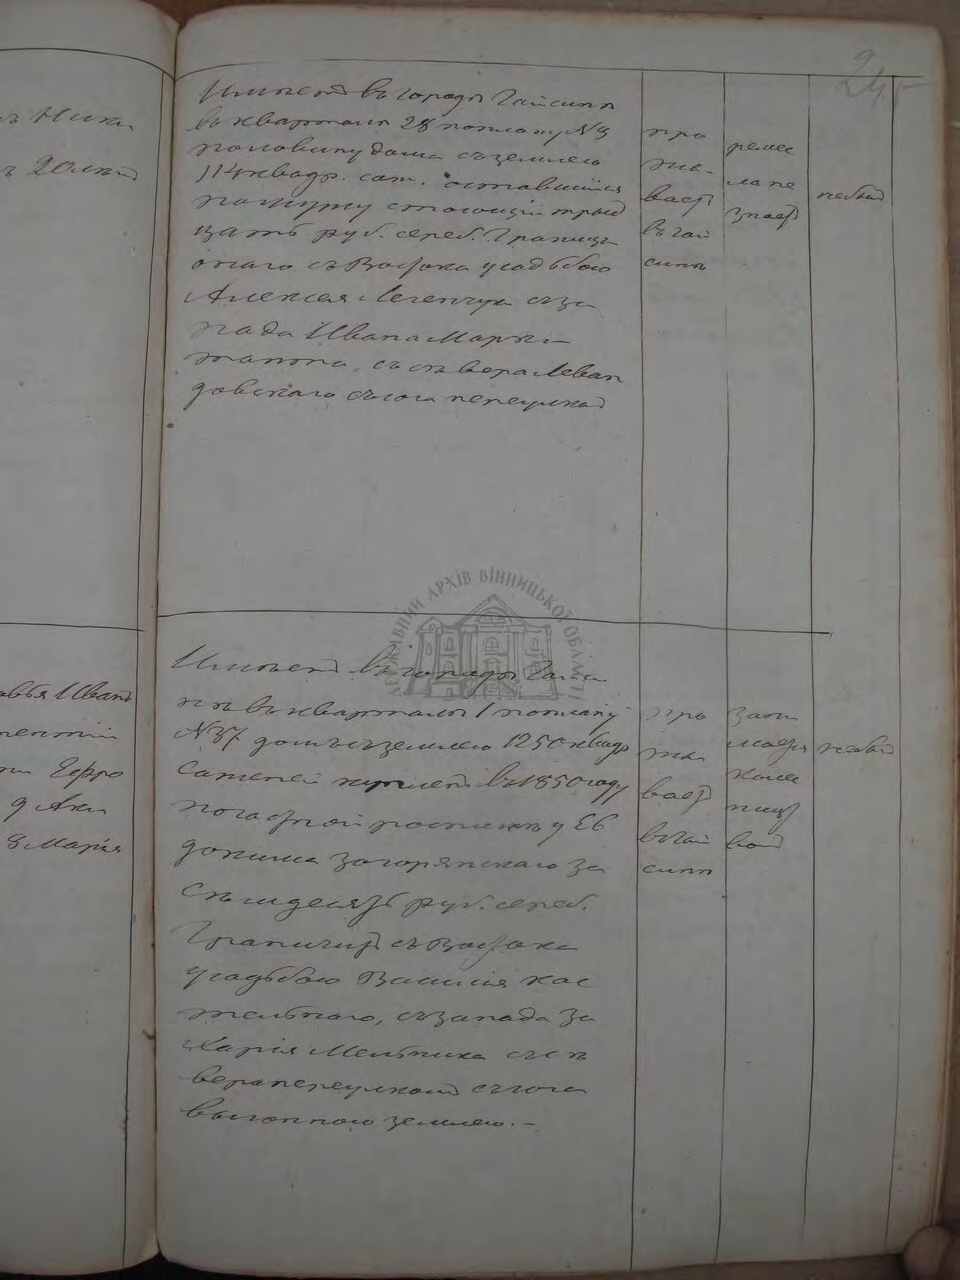 24
ъ Ники
ъ 20 лѣтъ
Имѣетъ въ городѣ Гайсинѣ
въ кварталѣ 28 поплану № 9
половину дома съ землею
114 квадр. саж. оставшійся
стоющій трид
цать руб. сереб. Гранич
онаго съ Востока усадьбою
Алексея съ за
пада Ивана Марти
съ сѣвера Леван
довскаго съ юга переулкомъ
про
жи-
ваетъ
въ Гай
синѣ
ремес
ла не
знаетъ
небылъ
ДЕРЖАВНИЙ АРХІВ ВІННИЦЬКОЇ ОБЛАСТІ
Иванъ
Ефро
9 Аки
8 Марія
Имѣетъ въ городѣ Гайси
нѣ въ кварталѣ 1 поплану
№ 37 домъ съ землею 1250 квадр
саженей купленъ въ 1850 году
по у Ев
докима Загорянскаго за
семдесятъ руб. сереб.
Граничитъ съ Востока
усадьбою Василія Кос
тельнаго, съ запада За
харія Мельника съ сѣ
вера переулкомъ съ юга
выгонною землею. –
про
жи
ваетъ
въ Гай
синѣ
зани
мается
колес
ниц
вой
небылъ